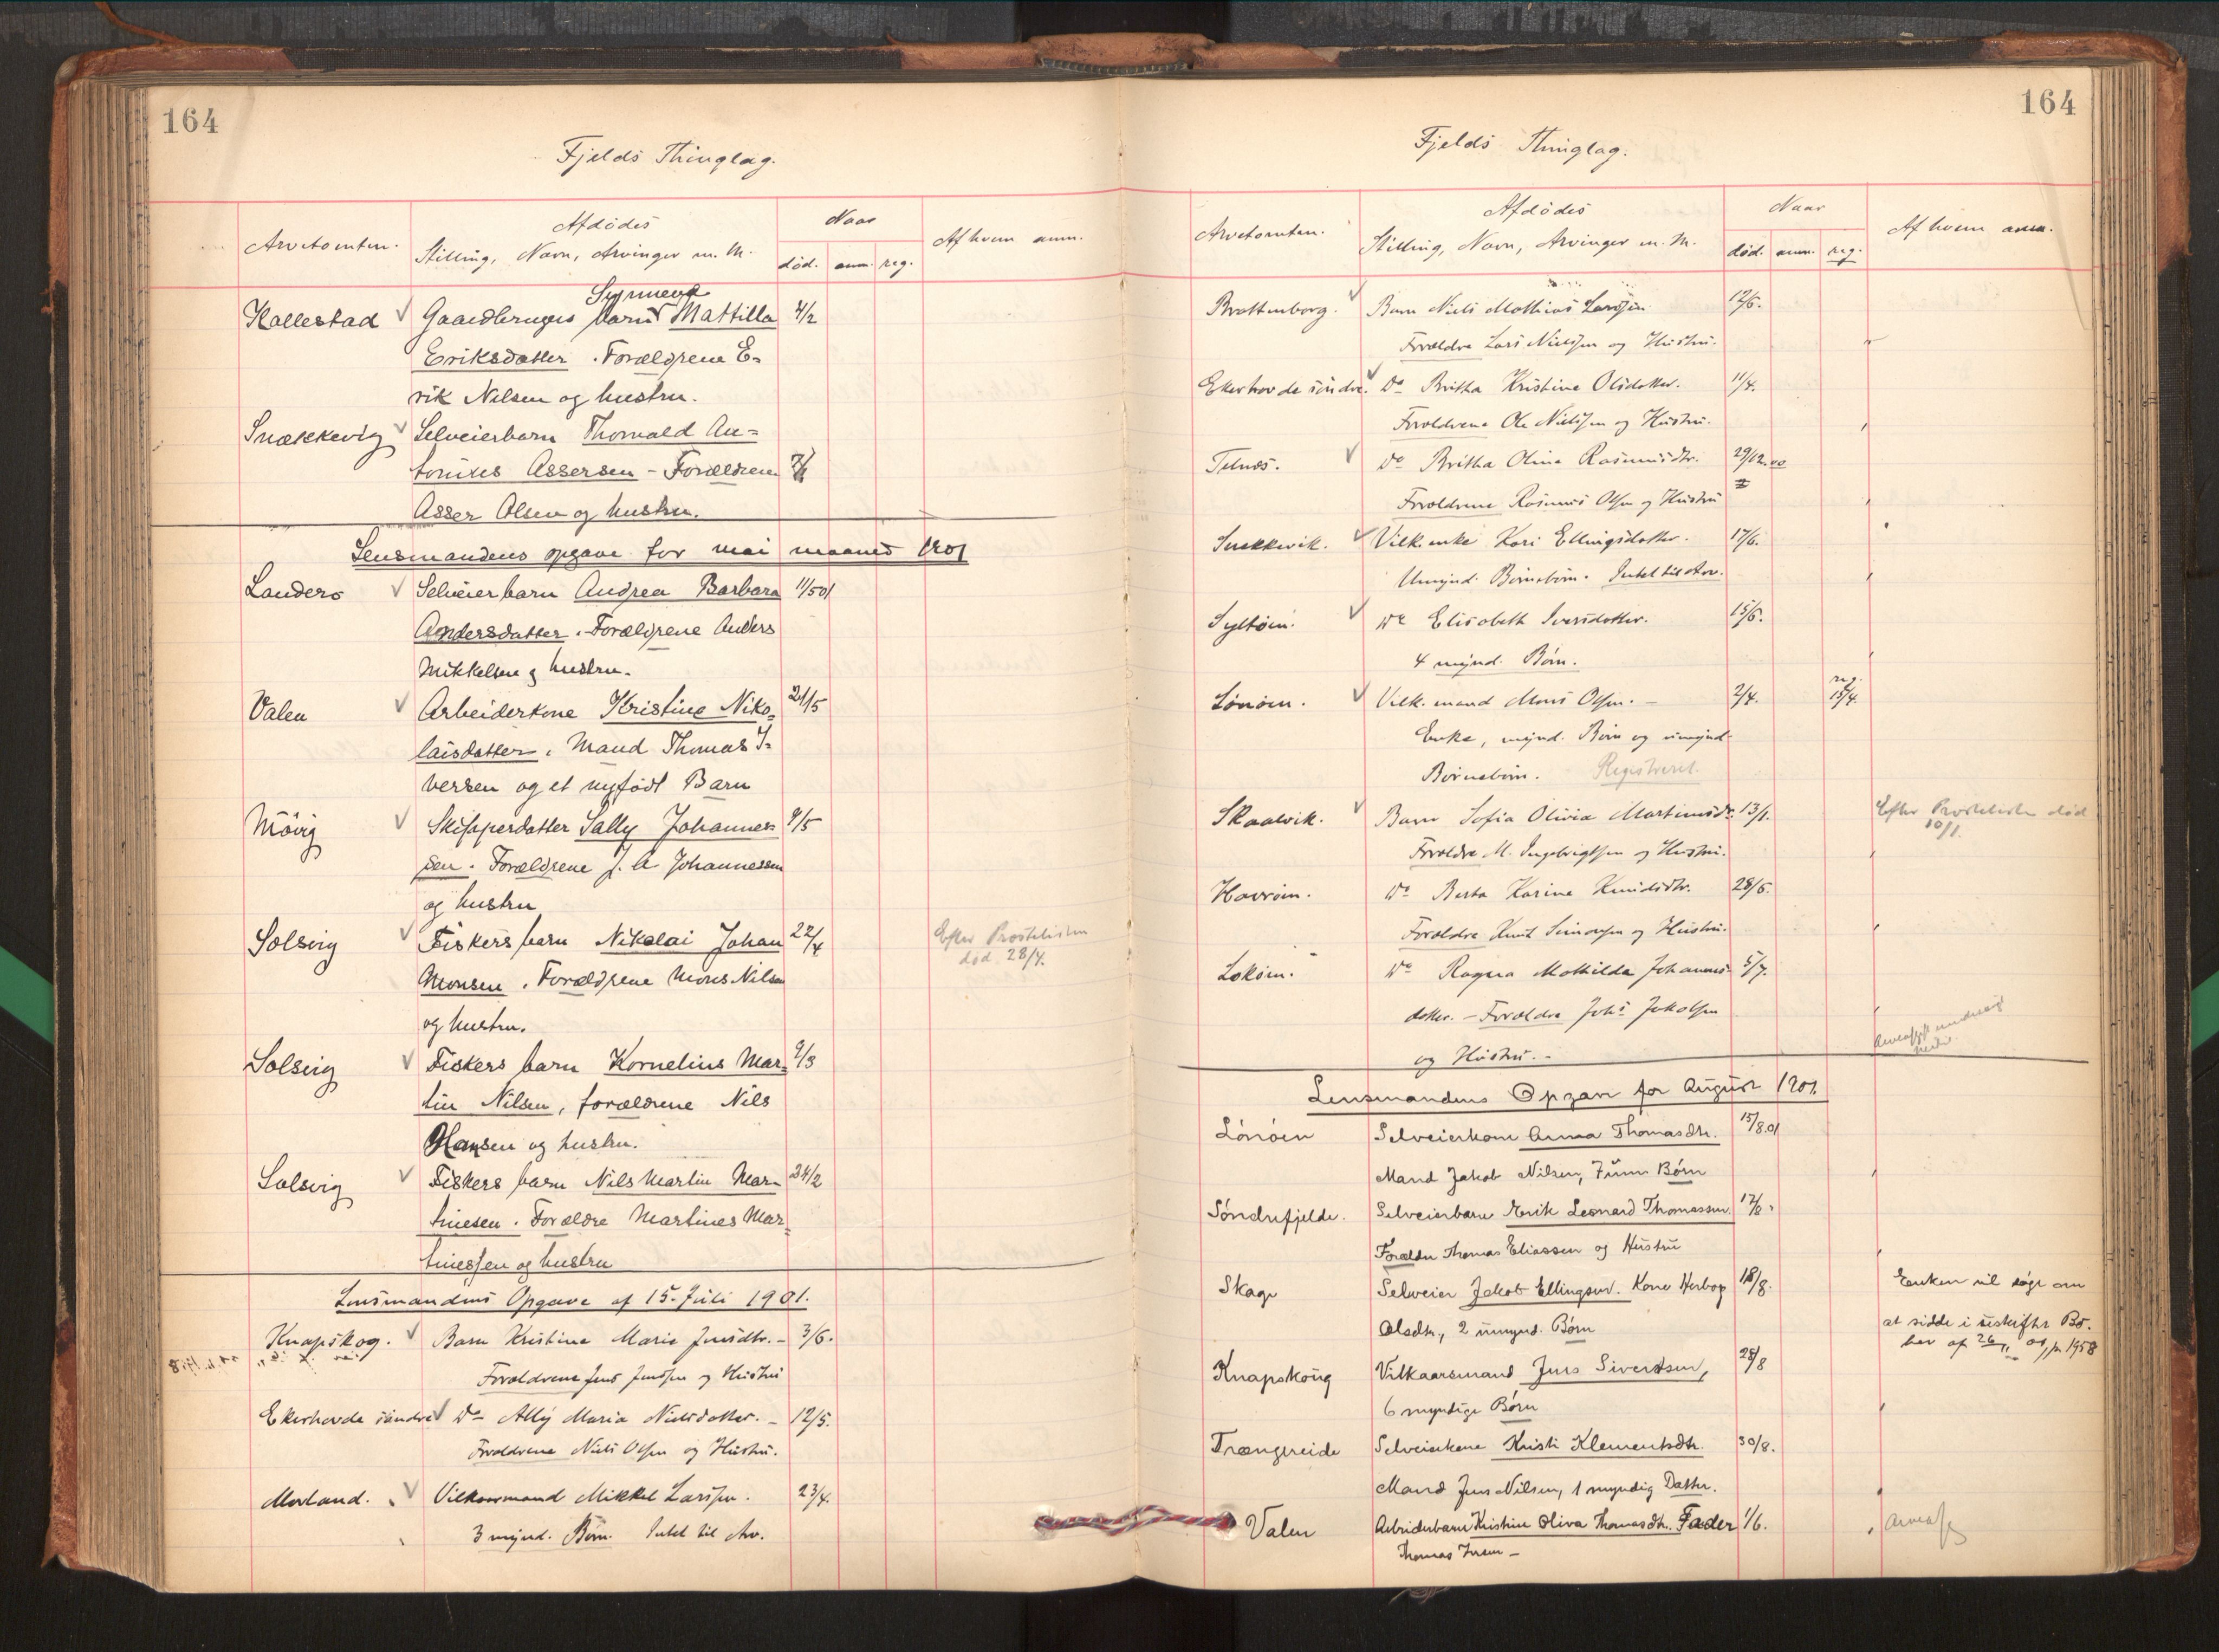 164
Fjelds Thinglag.
Arvetomten.
Afdødes
Stilling, Navn, Arvinger m. M.
Naar
død. anm. reg.
Af hvem anm.
Kallestad Gaardbrugers barn Synneva Mattilla 4/2
Eriksdatter. Forældrene E-
rik Nilsen og hustru.
Snekkevig Selveierbarn Thorvald An=
tonius Assersen - Forældrene
Asser Olsen og hustru.
Lensmandens opgave for mai maaned 1901
Landerø Selveierbarn Andrea Barbara 11/5 01
Andersdatter. Forældrene Anders
Mikkelsen og hustru.
Valen Arbeiderkone Kristine Niko= 21/5
laisdatter. Mand Thomas I-
versen og et nyfødt Barn
Møvig Skipperdatter Sally Johannes= 9/5
sen. Forældrene J. A. Johannessen
og hustru
Solsvig Fiskers barn Nikolai Johan 22/4 Efter Prostelisten
død 28/4.
Monsen. Forældrene Mons Nilsen
og hustru.
Solsvig Fiskers barn Kornelius Mar= 9/3
tin Nilsen, forældrene Nils
Hansen og hustru.
Solsvig Fiskers barn Nils Martin Mar- 24/2
tinesen. Forældre Martines Mar=
tinessen og hustru
Lensmandens Opgave af 15. Juli 1901.
Knapskog. Barn Kristine Marie Jensdtr. - 3/6.
Forældrene Jens Jenssen og Hustru
Ekerhovde søndre Do Ally Maria Nielsdatter. - 12/5.
Forældrene Niels Olsen og Hustru.
Morland. Vilkaarmand Mikkel Larssen. 23/4.
3 mynd. Børn. Intet til Arv.
164
Fjelds Thinglag.
Arvetomten.
Afdødes
Stilling, Navn, Arvinger m. M.
Naar
død. anm. reg.
Af hvem anm.
Brattenborg. Barn Niels Mathias Larssen 12/6.
Forældre Lars Nielssen og Hustru.
Ekerhovde søndre. Do Britha Kristine Olsdatter. 11/4.
Forældrene Ole Nielssen og Hustru.
Telnæs. Do Britha Olina Rasmusdtr. 29/12.00
Forældrene Rasmus Olsen og Hustru
Snekkevik. Vilk.enke Kari Ellingsdatter. 17/6.
Umynd. Børnebørn. Intet til Arv.
Syltøen. Do Elisabeth Iversdatter. 15/6.
4 mynd. Børn.
Lønøen. Vilk. mand Mons Olsen. - 2/4. reg. 15/4.
Enke, mynd. Børn og umynd.
Børnebørn. Registreret.
Skaalvik. Barn Sofia Olivia Martinsdr. 13/1. Efter Prostelisten død
10/1.
Forældre M. Ingebrigtsen og Hustru.
Havrøen. Do Berta Karine Knudsdtr. 28/6.
Forældre Knut Simonsen og Hustru.
Lokøen. Do Ragna Mathilda Johannes- 5/7.
datter. - Forældre Johs Jakobsen
og Hustru. -
Lensmandens Opgave for August 1901.
Lønøen Selveierkone Anna Thomasdtr. 15/8.01
Mand Jakob Nilsen, 7 umm Børn
Søndrefjelde. Selveierbarn Erik Leonard Thomassen 17/8
Forældre Thomas Eliassen og Hustru
Skage Selveier Jakob Ellingsen. Kone Herbog 18/8. Enken vil søge om
Olsdtr., 2 umynd. Børn at sidde i uskiftet Bo.
bev af 26/11 01, jr 1958
Knapskoug Vilkaarsmand Jens Sivertsen, 28/8
6 myndige Børn
Trængereide Selveierkone Kristi Klementsdtr. 30/8.
Mand Jens Nilsen, 1 myndig Datter.
Valen Arbeiderbarn Kristine Oliva Thomasdtr. Fader 1/6.
Thomas Iversen -